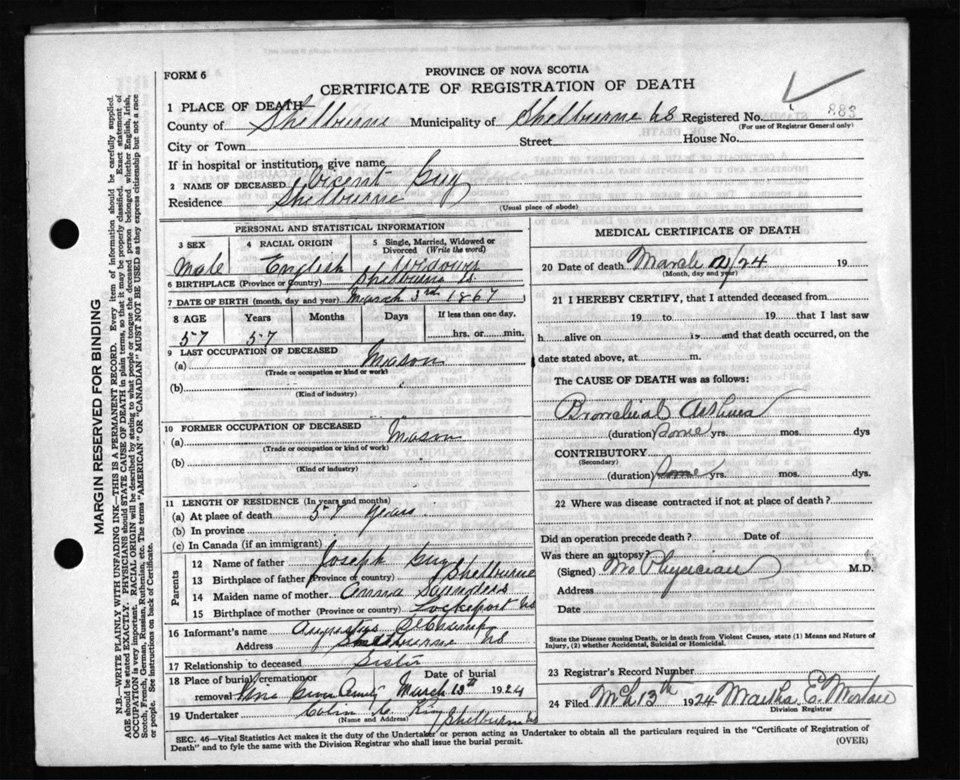 FORM 6
PROVINCE OF NOVA SCOTIA
CERTIFICATE OF REGISTRATION OF DEATH
1 PLACE OF DEATH
County of Shelburne Municipality of Shelburne NS Registered No. 883
(For use of Registrar General only)
City or Town Street House No.
If in hospital or institution, give name
2 NAME OF DECEASED Guy
Residence Shelburne
(Usual place of abode)
PERSONAL AND STATISTICAL INFORMATION
3 SEX 4 RACIAL ORIGIN 5 Single, Married, Widowed or Divorced (Write the word)
Male English Widower
6 BIRTHPLACE (Province or country) Shelburne NS
7 DATE OF BIRTH (month, day and year) March 3rd 1867
8 AGE Years Months Days If less than one day,
57 57 hrs. or min.
9 LAST OCCUPATION OF DECEASED
(a) Mason
(Trade or occupation or kind or work)
(b)
(Kind of industry)
10 FORMER OCCUPATION OF DECEASED
(a) Mason
(Trade or occupation or kind or work)
(b)
(Kind of industry)
11 LENGTH OF RESIDENCE (In years and months)
(a) At place of death 57 Years
(b) In province
(c) In Canada (if an immigrant)
Parents
12 Name of father Joseph Guy
13 Birthplace of father (Province or country) Shelburne
14 Maiden name of mother Saunders
15 Birthplace of mother (Province or country) Lockeport NS
16 Informant's name
Address Shelburne NS
17 Relationship to deceased Sister
18 Place of burial, cremation or removal Date of burial
March 13th 1924
19 Undertaker Colin C. King Shelburne NS
(Name and Address)
MEDICAL CERTIFICATE OF DEATH
20 Date of death March /24 19
(Month, day and year)
21 I HEREBY CERTIFY, that I attended deceased from
19 to 19 that I last saw
h alive on 19 and that death occurred, on the
date stated above, at m.
The CAUSE OF DEATH was as follows:
Bronchial Asthma
(duration) Some yrs. mos. dys
CONTRIBUTORY
(Secondary)
(duration) Some yrs. mos. dys.
22 Where was disease contracted if not at place of death?
Did an operation precede death? Date of
Was there an autopsy?
(Signed) No Physician M.D.
Address
Date
State the Disease causing Death, or in death from Violent Causes, state (1) Means and Nature of
Injury, (2) whether Accidental, Suicidal or Homicidal.
23 Registrar's Record Number
24 Filed Mch 13th 1924 Martha E.
Division Registrar
SEC. 46—Vital Statistics Act makes it the duty of the Undertaker or person acting as Undertaker to obtain all the particulars required in the "Certificate of Registration of
Death" and to fyle the same with the Division Registrar who shall issue the burial permit.
(OVER)
MARGIN RESERVED FOR BINDING
N.B.—WRITE PLAINLY WITH UNFADING INK—THIS IS A PERMANENT RECORD. Every item of information should be carefully supplied.
AGE should be stated EXACTLY. PHYSICIANS should STATE CAUSE OF DEATH in plain terms, so that it may be properly classified. Exact statement of
OCCUPATION is very important. RACIAL ORIGIN will be described by stating to what people or tongue the deceased person belonged whether English, Irish,
Scotch, French, German, Russian, Ruthenian, etc. The terms "AMERICAN" OR "CANADIAN" MUST NOT BE USED as they express citizenship but not a race
or people. See instructions on back of Certificate.